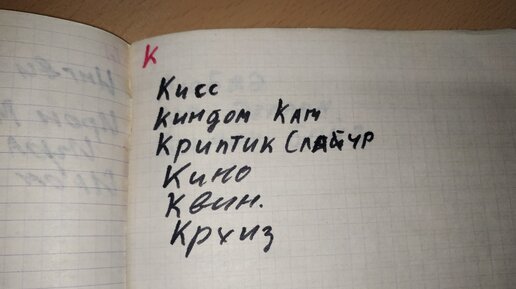 К
Кисс
Киндом Кам
Криптик Слайтр
Кино
Квин.
Крхиз